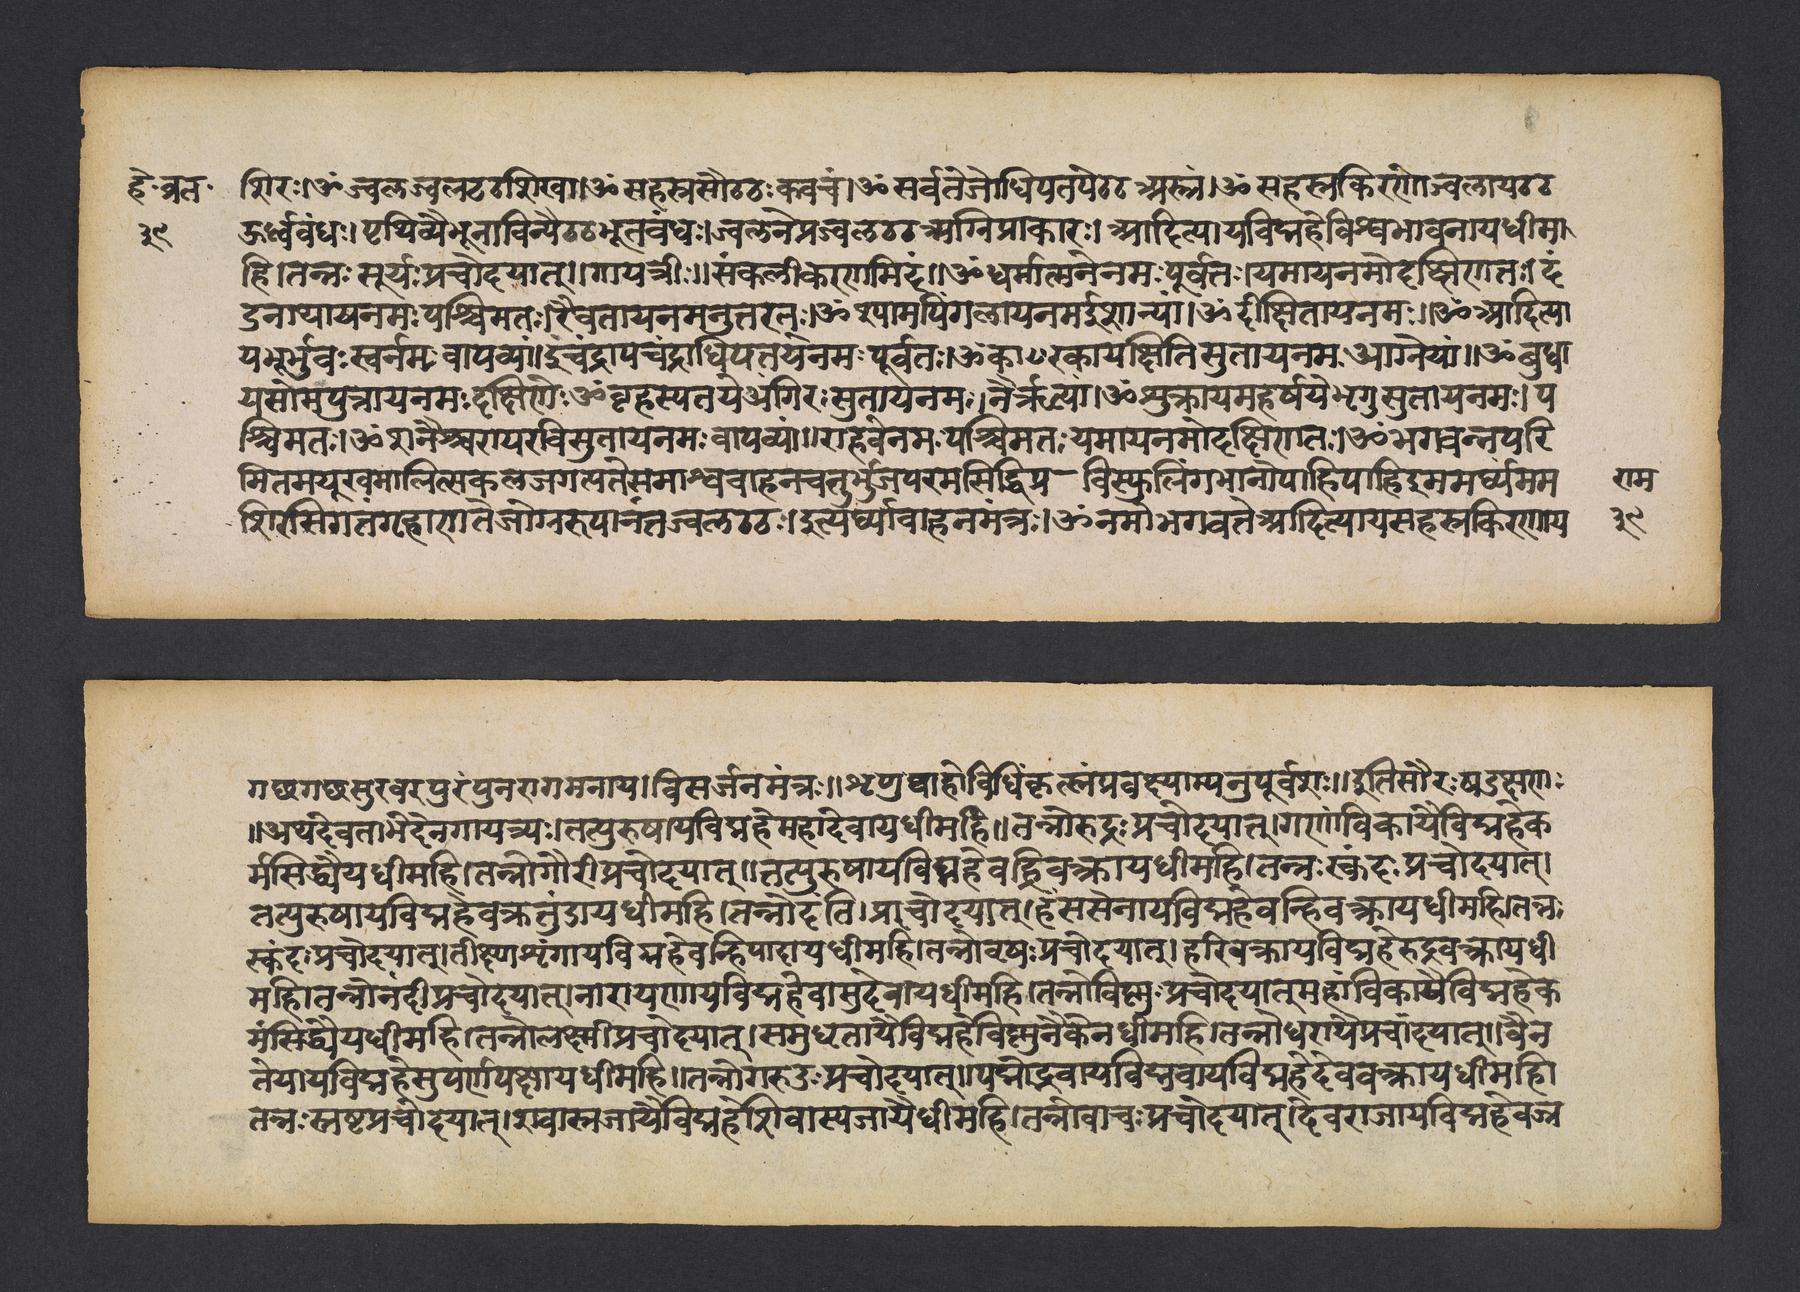 हे॰ व्रत॰
३९
शिरः।ॐज्वलज्वलठठशिखा।ॐसहस्रसौठठःकवचं।ॐसर्वतेजोधिपतयेठठअस्त्रं।ॐसहस्रकिरणोज्वलायठठ
ऊर्ध्वबंधः।पृथिव्यैभूनाविन्यैठठभूतबंधः।ज्वलनेप्रज्वलठठअग्निप्राकारः।आदित्यायविद्महेविश्वभावनायधीमा
हि।तन्नःसूर्यःप्रचोदयात्॥गायत्रीः॥संकलीकरणमिदं॥ॐधर्मात्मनेनमःपूर्वतः।यमायनमोदक्षिणतः।दं
डनाथायनमःपश्चिमतः।रैवतायनमनुत्तरतः।ॐश्यामपिंगलायनमईशान्यां।ॐदीक्षितायनमः॥ॐआदित्या
यभूर्भुवःस्वर्नमःवायव्यां।इंचंद्रायचंद्राधिपतयेनमःपूर्वतः।ॐअंगारकायक्षितिसुतायनमःआग्नेयां॥ॐबुधा
यसोमपुत्रायनमःदक्षिणेःॐबृहस्पतयेअंगिरःसुतायनमः।नैर्ऋत्यां।ॐशुक्रायमहर्षयेभृगुसुतायनमः।प
श्चिमतः।ॐशनैश्चरायरविसुतायनमःवायव्यां॥राहवेनमःपश्चिमतःयमायनमोदक्षिणतः।ॐभगवन्नपरि
मितमयूखमालित्सकलजगत्पतेसमाश्ववाहनचतुर्भुजपरमसिद्धिप्र–विस्फुलिंगभानोपाहिपाहिइममर्घ्यमम
शिरसिगतंगृह्णतेजोग्नरूपानंतज्वलठठः।इत्यर्घ्यावाहनमंत्रः।ॐनमोभगवतेआदित्यायसहस्रकिरणाय
राम
३९
गछगछसुरवरपुरंपुनरागमनाय।विसर्जनमंत्रः॥शृणुष्वाहोविधिंकृत्स्नंप्रवक्ष्याम्यनुपूर्वशः॥इतिसौरःषडक्षणः
॥अथदेवताभेदेनगायत्र्यः।तत्पुरुषायविद्महेमहादेवायधीमहि॥तन्नोरुद्रःप्रचोदयात्।गणांविकायैविद्महेक
र्मसिद्ध्यैयधीमहि।तन्नोगौरीप्रचोदयात्॥तत्पुरुषायविद्महेवह्निवक्त्रायधीमहि।तन्नःस्कंदःप्रचोदयात्।
तत्पुरुषायविद्महेवक्रतुंडायधीमहि।तन्नोदंति।प्राचोदयात्।हेंससेनायविद्महेवन्हिवक्त्रायधीमहि।तन्नः
स्कंदःप्रचोदयात्।तीक्ष्णशृंगायविद्महेवन्हिपादायधीमहि।तन्नोवृषःप्रचोदयात्।हरिवक्त्रायविद्महेरुद्रवक्त्रायधी
महि।तन्नोनंदीप्रचोदयात्।नारायणायविद्महेवासुदेवायधीमहि।तन्नोविष्णुःप्रचोदयात्महांविकायैविद्महेक
र्मसिद्ध्यैयधीमहि।तन्नोलक्ष्मीप्रचोदयात्।समुधृतायैविद्महेविष्णुनैकेनधीमहि।तन्नोधरायैप्रचोदयात्॥वैन
तेयायविद्महेसुपर्णपक्षायधीमहि॥तन्नोगरुडःप्रचोदयात्॥पद्मोद्भवायविद्मवायविद्महेदेववक्त्रायधीमहि।
तन्नःस्रष्टाप्रचोदयात्।शिवास्यजायैविद्महेशिवास्यजायैधीमहि।तन्नोवाचःप्रचोदयात्।देवराजायविद्महेवज्र